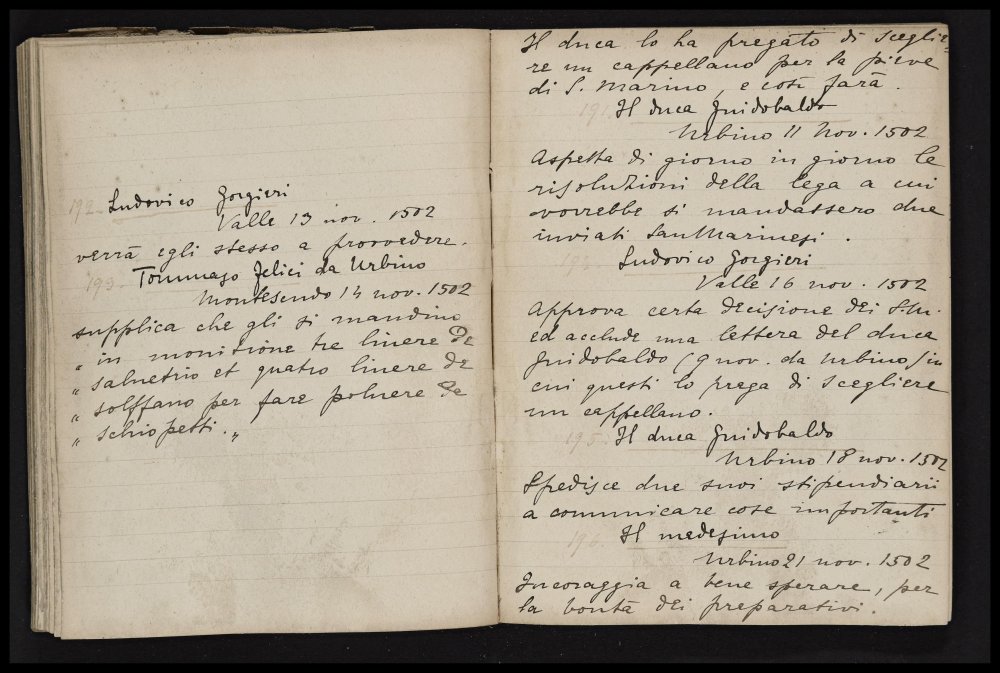 192. Ludovico Gorgieri
Valle 13 nov. 1502
verrà egli stesso a provvedere.
193. Tommaso Felici da Urbino
Montesecudo 14 nov. 1502
supplica che gli si mandino
" in monitione tre linere de
" salnetrio et quatro linere de
" solffano per fare polvere de
" schiopetti. "
Il duca lo ha pregato di sceglie-
re un cappellano per la pieve
di S. Marino, e così farà.
191. Il duca Guidobaldo
Urbino 11 Nov. 1502
Aspetta di giorno in giorno le
risoluzioni della lega a cui
vorrebbe si mandassero due
inviati SanMarinesi.
Ludovico Gorgieri
Valle 16 nov. 1502
Approva certa decisione dei
ed acclude una lettera del duca
Guidobaldo (9 nov. da Urbino) in
cui questi lo prega di scegliere
un cappellano.
195. Il duca Guidobaldo
Urbino 18 nov. 1502
Spedisce due suoi stipendiarii
a communicare cose importanti
196. Il medesimo
Urbino 21 nov. 1502
Incoraggia a bene sperare, per
la bontà dei preparativi.